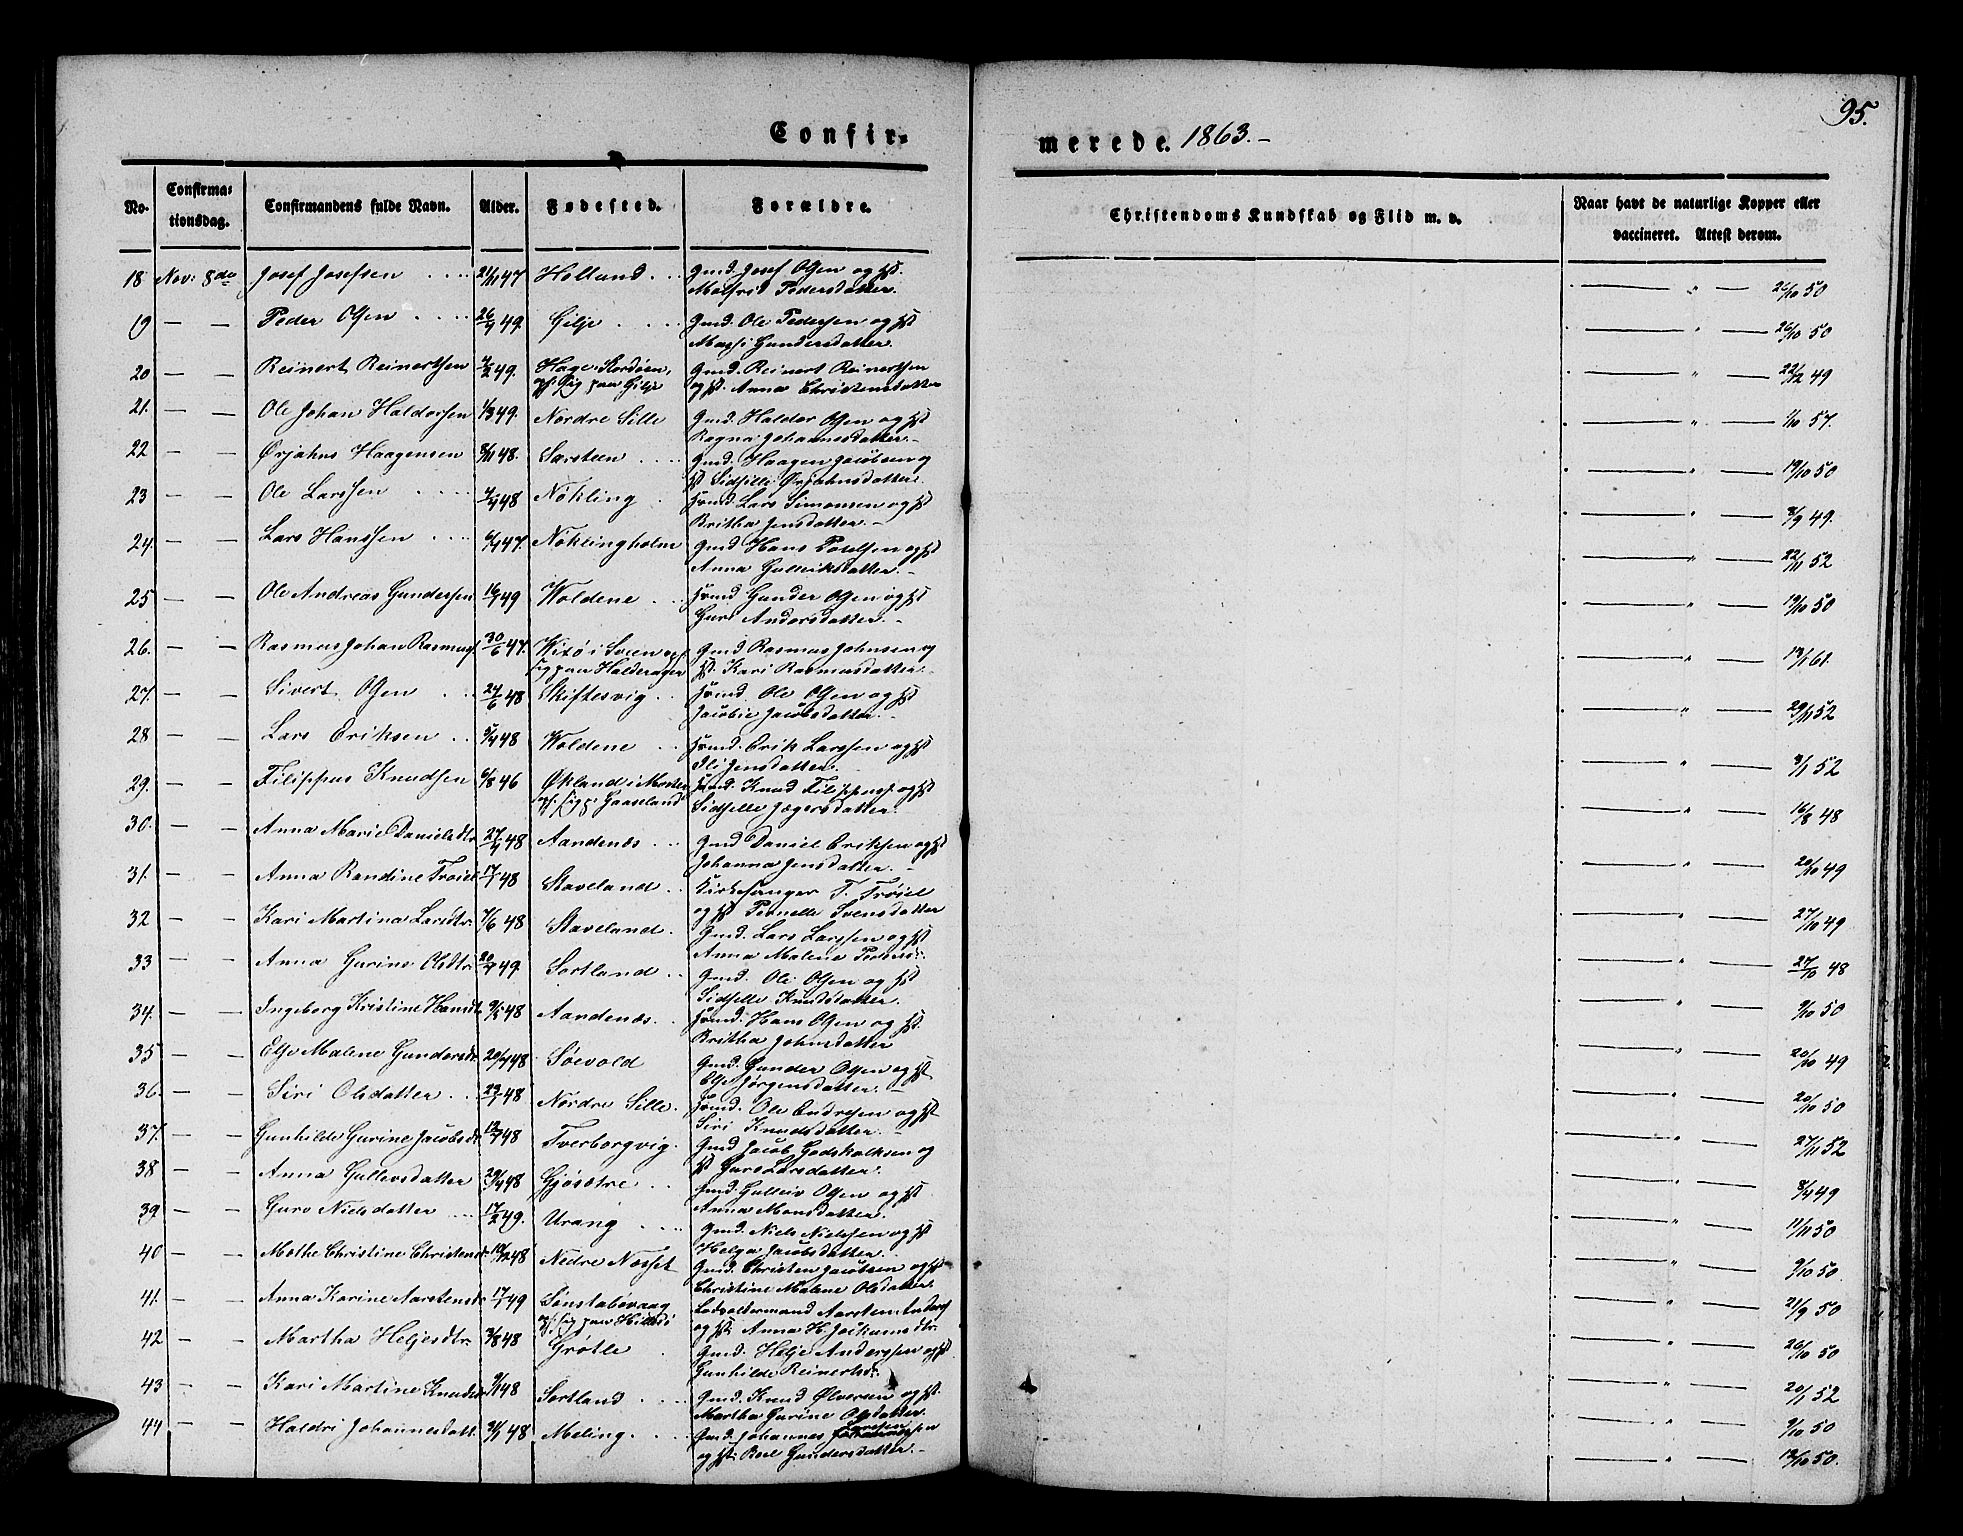 95.
Confir=
merede. 1863.-
No. Confirma=tionsdag. Confirmandens fulde Navn. Alder. Fødested. Forældre.
Christendoms Kundskab og Flid m. v.
Naar havt de naturlige Kopper eller
vaccineret. Attest derom.
18 Nov: 8de Josef Josefsen 21/11 47 Holland Gmd. Josef Olsen og Hst.
Malfrid Pedersdatter. 26/10 50
19 — — Peder Olsen 26/9 49. Gilje Gmd. Ole Pedersen og Hst
Magsi Gundersdatter. 26/10 50
20 — — Reinert Reinertsen 4/2 49. Hage i Gmd. Reinert Reinertsen
og Hst. Anna Christensdatter 22/12 49
21. — — Ole Johan Haldorsen 1/3 49. Nordre Sille Gmd. Haldor Olsen og Hst
Ragna Johannesdatter.- 1/10 57.
22 — — Ørjahns Haagensen 8/11 48. Sarsteen Gmd. Haagen Jacobsen og
Hst Sidselle Ørjahnsdatter. 19/10 50
23 — — Ole Larssen 4/4 48 Nøkling Huusmd. Lars Simonsen og Hst
Britha Jensdatter.- 8/9 49.
24. — — Lars Hanssen 6/4 47. Nøklingholm Gmd Hans Poulsen og Hst
Anna Gulleiksdatter.- 22/11 52
25 — — Ole Andreas Gundersen 16/7 49 Woldene Gunder Olsen og Hst
Guri Andersdatter.- 19/10 50
26. — — Rasmus Johan Rasmuss. 30/6 47. Witsø i Sveen
Halderager Gmd Rasmus Johnsen og
Hst. Kari Rasmusdatter. 13/1 61.
27. — — Sivert Olsen 24/6 48 Skiftesvig Ole Olsen og Hst
Jacobie Jacobsdatter.- 29/11 52
28 — — Lars Eriksen 9/4 48 Woldene Erik Larssen og Hst
Ili Jensdatter. 3/1 52
29. — — Filippus Knudsen 6/8 46 Økland i Moster
Gaaseland Knud Filippuss. og Hst
Sidselle Jægersdatter. 16/8 48
30. — — Anna Marie Danielsdtr 27/4 48 Aandenæs Gmd Daniel Eriksen og Hst
Johanna Jensdatter.- 20/10 49
31. — — Anna Randine Troiel 17/7 48 Staveland Kirkesanger T. Trøiel
og Hst Pernelle Svensdatter 27/10 49
32 — — Kari Martina Larsdtr. 7/6 48 Staveland. Gmd. Lars Larssen og Hst
Anna Malene Peders: 27/10 48
33 — — Anna Gurine Olsdtr. 20/4 49. Sortland Gmd. Ole Olsen og Hst
Sidselle Knudsdatter. 9/10 50
34. — — Ingeborg Kristine Hansdt. 9/5 48 Aandenæs. Hans Olsen og Hst.
Brittha Johnsdatter 20/10 49
35 — — Else Malene Gundersdt. 20/4 48 Søevold Gmd. Gunder Olsen og Hst
Else Jørgensdatter. 20/10 50
36. — — Siri Olsdatter 23/7 48 Nordre Sille. Ole Endresen og Hst
Siri Knudsdatter.- 27/11 52
37. — — Gunhilde Gurine Jacobsdt. 12/7 48 Tverborgvig. Gmd Jacob Godskalksen og
Hst Guro Larsdatter. 8/4 49
38 — — Anna Gullersdatter 29/4 48 Gjøsøtre Gulleiv Olsen og Hst
Anna Monsdatter. 11/11 50
39 — — Guro Nielsdatter 17/2 49. Urang Gmd. Niels Nielsen og Hst
Helga Jacobsdatter. 9/10 50.
40 — — Mothe Christine Christensdt. 18/12 48 Nedre Nosset Gmd. Christen Jacobsen og Hst
Christine Malene Olsdatter. 21/9 50
41. — — Anna Karine Aarstensdr 17/7 49 Sønstabøvaag Lodsoldermand Aarsten Anders.
og Hst. Anna H. Jockumsdtr. 26/10 50
42 — — Martha Heljesdtr. 3/8 48 Grøtle Gmd. Helje Andersen og Hst.
Gunhilde Reinertsd: 20/1 52
43 — — Kari Martine Knudsdtr 9/1 48 Sortland Gmd. Knud Ølversen og Hst.
Martha Gurine Olsdatter. 9/10 50
44 — — Haldri Johannesdatt. 31/1 48 Meling. Gmd. Johannes Larssen
og Hst: Beel Gundersdatter.- 13/10 50.